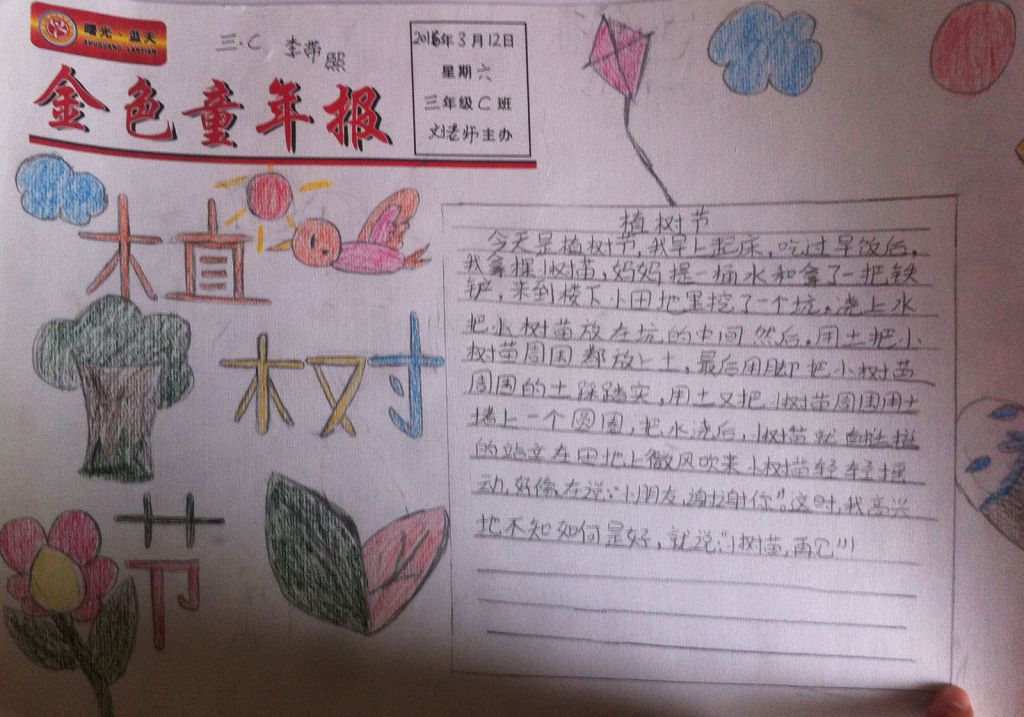 曙光·蓝天
SHUGUANG·LANTIAN
三.C 李 熙
金色童年报
2016年3月12日
星期六
三年级C班
刘老师主办
植
树
节
植树节
今天是植树节,我早上起床,吃过早饭后,
我拿探小树苗,妈妈提一桶水和拿了一把铁
铲,来到楼下小田地里挖了一个坑。浇上水
把小树苗放在坑的中间然后,用土把小
树苗周围都放上土,最后用脚把小树苗
周围的土踩踏实,用土又把小树苗周围用土
墙上一个圆圈,把水浇后,小树苗就
的站立在田地上微风吹来小树苗轻轻摇
动,好像在说:“小朋友,谢谢你”。这时,我高兴
地不知如何是好,就说:“小树苗,再见”!